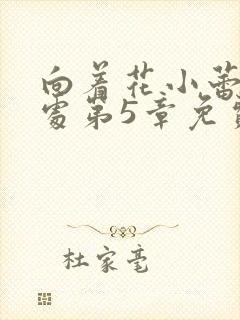 向着花小蕾
处第5章免费
杜家毫